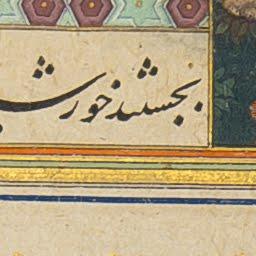 بجستند خورش